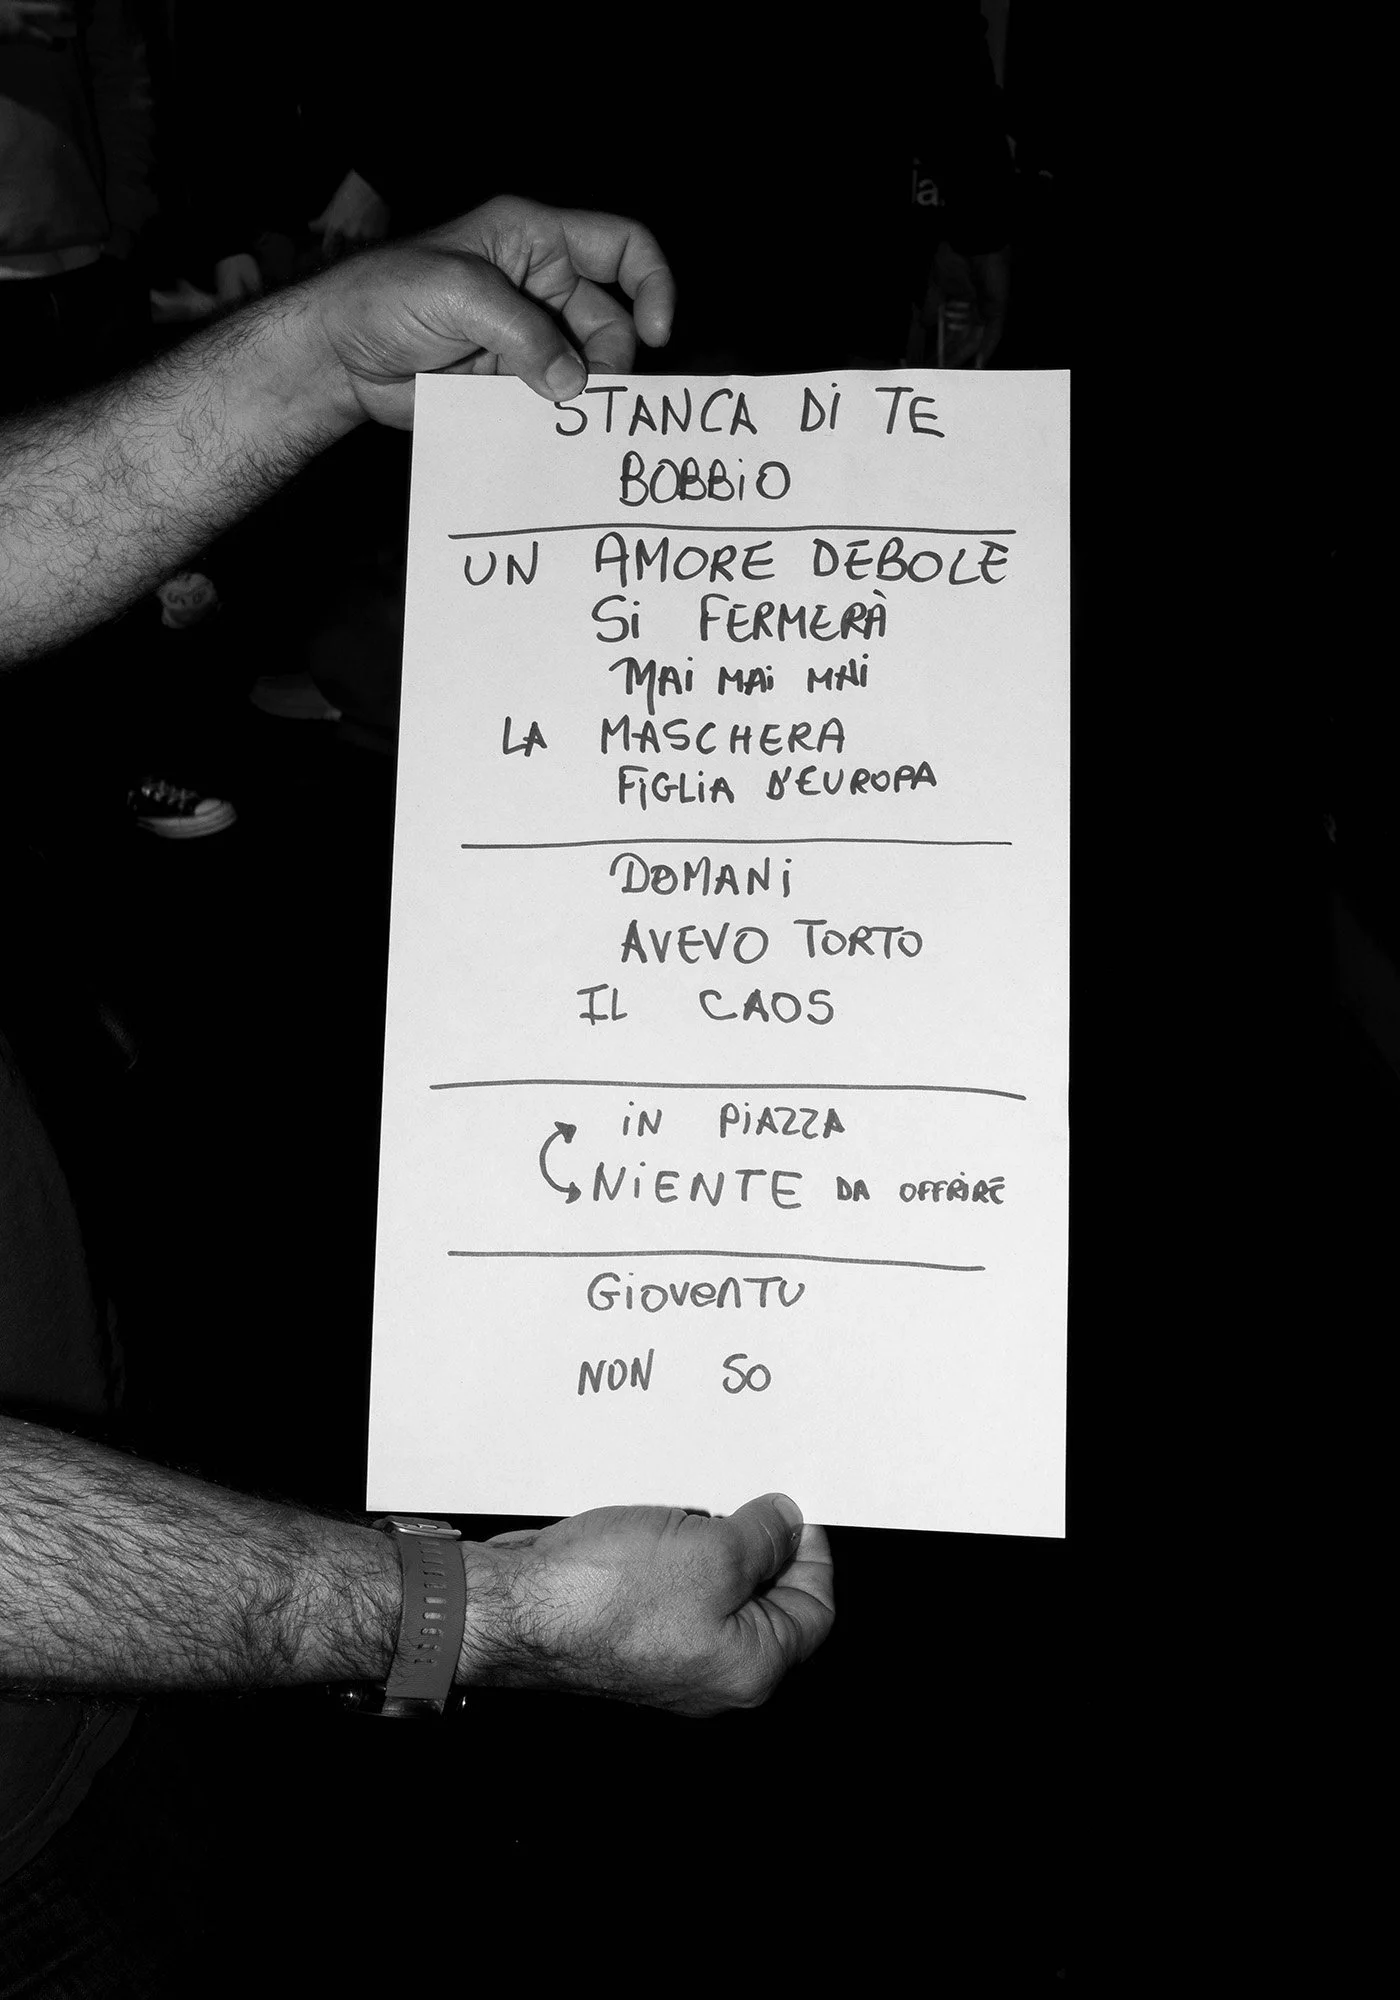 la.
STANCA Di TE
BOBBiO
UN AMORE DEBOLE
Si FERMERÀ
MAi MAi MAi
LA MASCHERA
FiGLiA D'EUROPA
DOMANi
AVEVO TORTO
IL CAOS
iN PiAZZA
NiENTE DA OFFRiRE
GiovenTU
NON SO